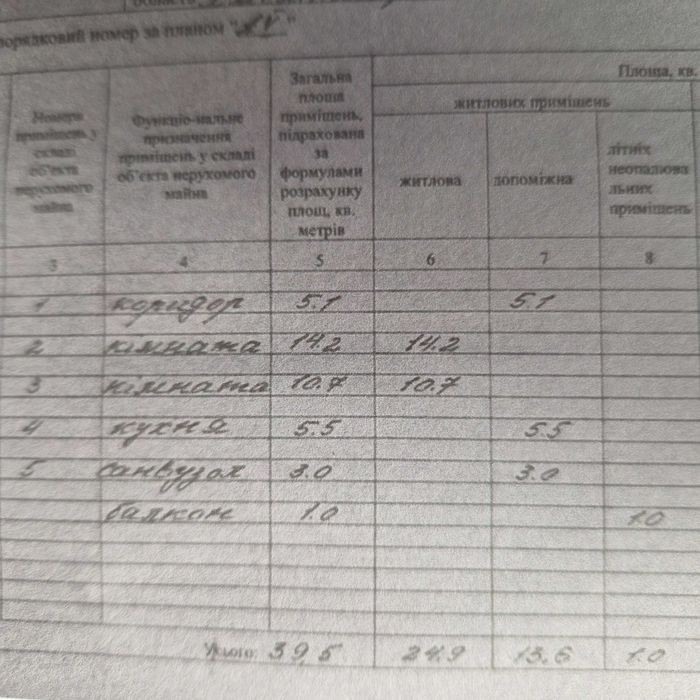 порядковий номер за планом "
Площа, кв.
житлових приміщень
Номери приміщень у складі об'єкта нерухомого майна
Функціо-нальне призначення приміщень у складі об'єкта нерухомого майна
Загальна площа приміщень, підрахована за формулами розрахунку площ, кв. метрів
житлова
допоміжна
літніх неопалюва льних приміщень
3 4 5 6 7 8
1 коридор 5.1 5.1
2 кімната 14.2 14.2
3 кімната 10.7 10.7
4 кухня 5.5 5.5
5 санвузол 3.0 3.0
балкон 1.0 1.0
Усього: 39,5 24.9 13.6 1.0